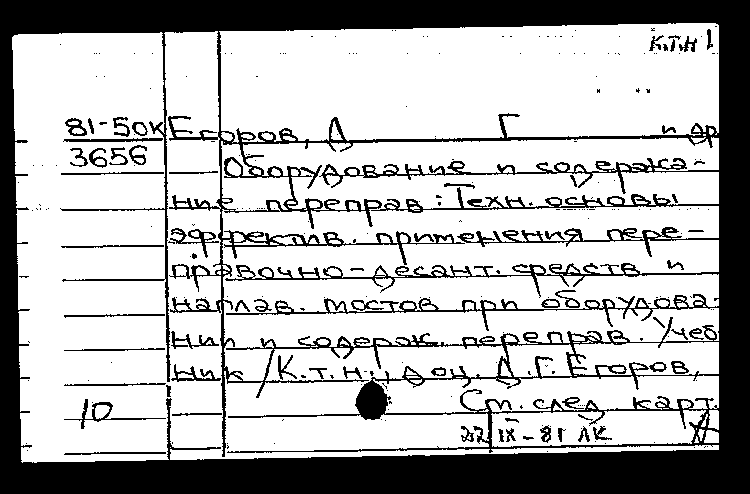 К.Т.Н 1
81-50к Егоров, Д Г и др
3656 Оборудование и содержа-
ние переправ: Техн. основы
эффектив. применения пере-
правочно-десант. средств и
наплав. мостов при оборудова-
нии и содерж. переправ. Учеб
ник /К.т.н., доц. Д.Г. Егоров,
10 См. след карт.
22/IX-81 ЛК